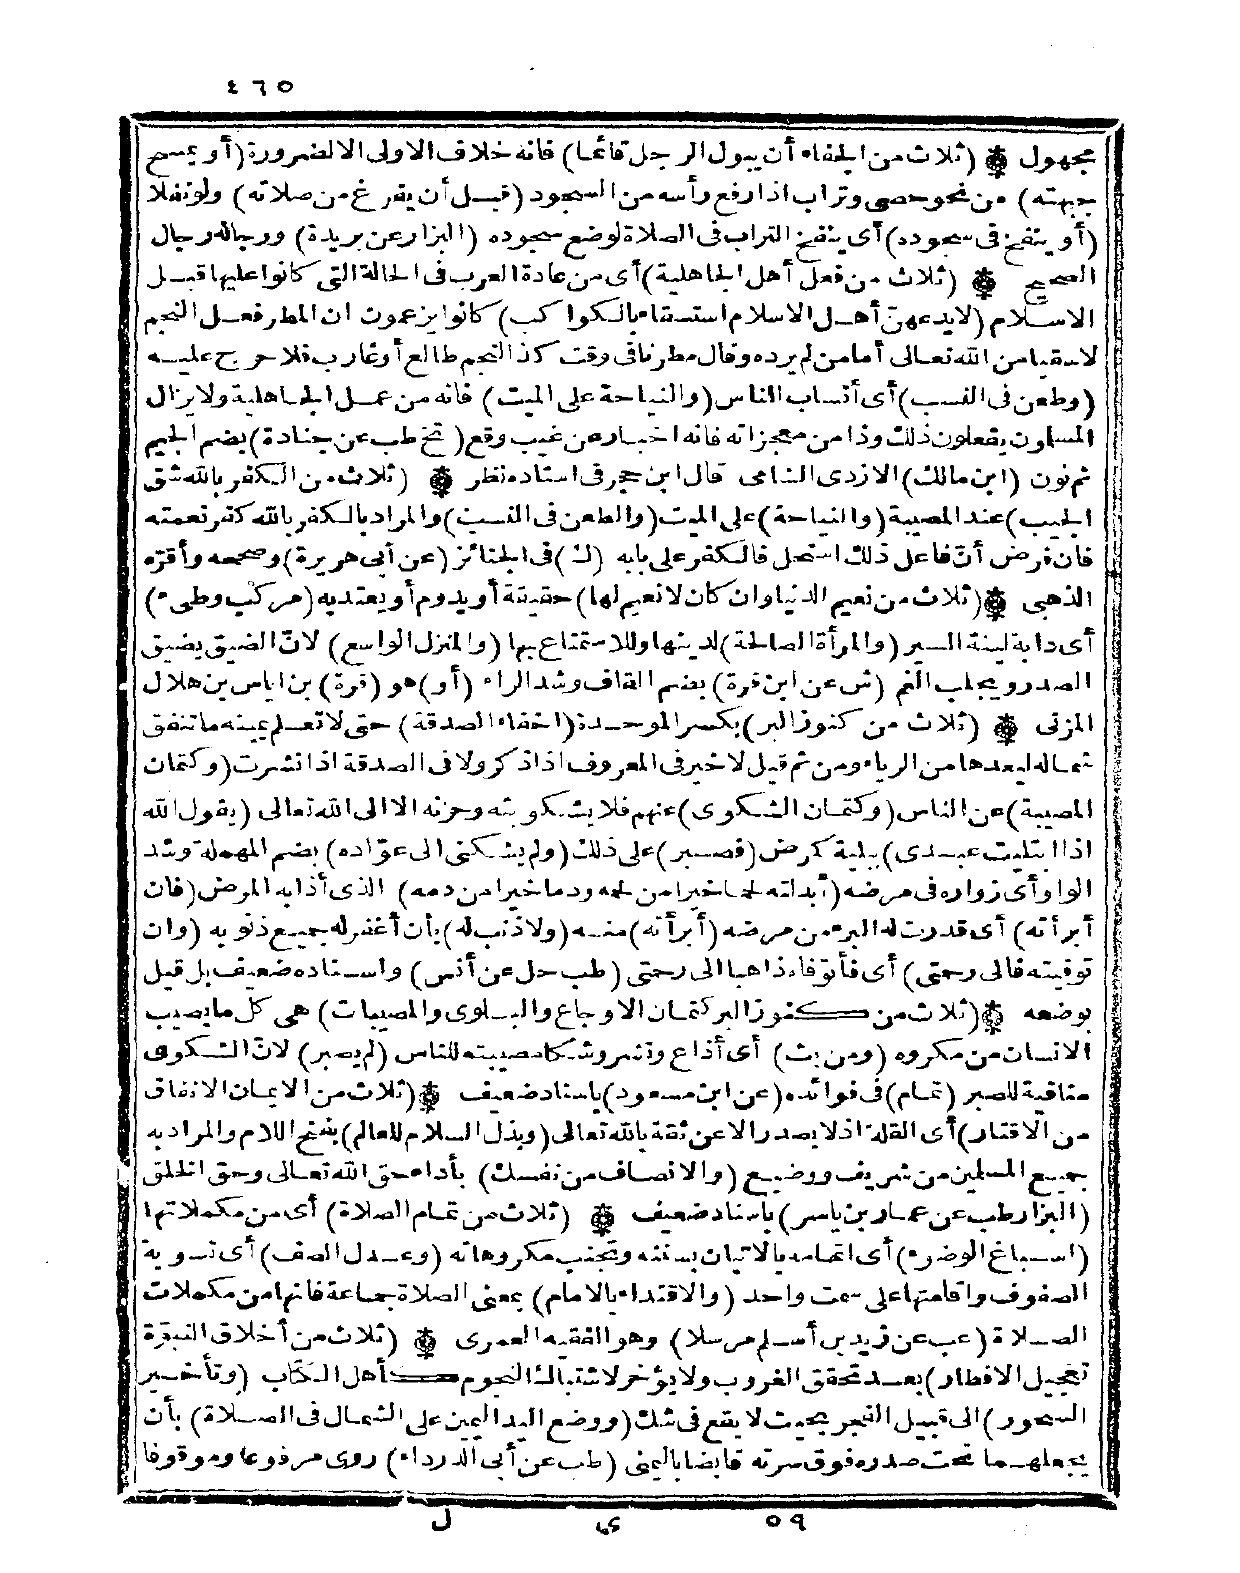 ٤٦٥
مجهول ۞ (ثلاث من الجفاء أن يبول الرجل قائما) فانه خلاف الاولى الا لضرورة (أو يمسح
جبهته) من نحو حصى وتراب اذا رفع رأسه من السجود (قبل أن يفرغ من صلاته) ولو نفلا
(أو ينفخ فى سجوده) أى ينفخ التراب فى الصلاة لوضع سجوده (البزار عن بريدة) ورجاله رجال
الصحيح ۞ (ثلاث من فعل أهل الجاهلية) أى من عادة العرب فى الحالة التى كانوا عليها قبل
الاسلام (لا يدعهن أهل الاسلام استسقاء بالكواكب) كانوا يزعمون ان المطر فعل النجم
لا سقيا من الله تعالى أما من لم يرده وقال مطرنا فى وقت كذا النجم طالع أو غارب فلا حرج عليه
(وطعن فى النسب) أى أنساب الناس (والنياحة على الميت) فانه من عمل الجاهلية ولا يزال
المسلون يفعلون ذلك وذا من معجزاته فانه اخبار عن غيب وقع (تخ طب عن جنادة) بضم الجيم
ثم نون (ابن مالك) الازدى الشامى قال ابن حجر فى اسناده نظر ۞ (ثلاث من الكفر بالله شق
الجيب) عند المصيبة (والنياحة) على الميت (والطعن فى النسب) والمراد بالكفر بالله كفر نعمته
فان فرض أنّ فاعل ذلك استحل فالكفر على بابه (ك) فى الجنائز (عن أبى هريرة) وصححه وأقرّه
الذهبى ۞ (ثلاث من نعيم الدنيا وان كان لا نعيم لها) حقيقة أو يدوم أو يعتد به (مركب وطىء)
أى دابة لينة السير (والمرأة الصالحة) لدينها وللاستمتاع بها (والمنزل الواسع) لانّ الضيق يضيق
الصدر ويجلب الغم (ش عن ابن قرة) بضم القاف وشد الراء (أو) هو (قرة) بن اياس بن هلال
المزنى ۞ (ثلاث من كنوز البر) بكسر الموحدة (اخفاء الصدقة) حتى لا تعلم يمينه ما تنفق
شماله لبعدها من الرياء ومن ثم قيل لا خير فى المعروف اذا ذكر ولا فى الصدقة اذا نشرت (وكتمان
المصيبة) عن الناس (وكتمان الشكوى) عنهم فلا يشكو بثه وحزنه الا الى الله تعالى (يقول الله
اذا ابتليت عبدى) ببلية كمرض (فصبر) على ذلك (ولم يشكنى الى عوّاده) بضم المهملة وشد
الواو أى زواره فى مرضه (أبدلته لحما خيرا من لحمه ودما خيرا من دمه) الذى أذابه المرض (فان
أبرأته) أى قدرت له البرء من مرضه (أبرأته) منه (ولا ذنب له) بأن أغفر له جميع ذنوبه (وان
توفيته فالى رحمتى) أى فأتوفاه ذاهبا الى رحمتى (طب حل عن أنس) واسناده ضعيف بل قيل
بوضعه ۞ (ثلاث من كنوز البر كتمان الاوجاع والبلوى والمصيبات) هى كل ما يصيب
الانسان من مكروه (ومن بث) أى أذاع ونشر وشكا مصيبته للناس (لم يصبر) لانّ الشكوى
منافية للصبر (تمام) فى فوائده (عن ابن مسعود) باسناد ضعيف ۞ (ثلاث من الايمان الانفاق
من الاقتار) أى القلة اذ لا يصدر الا عن ثقة بالله تعالى (وبذل السلام للعالم) بفتح اللام والمراد به
جميع المسلمين من شريف ووضيع (والانصاف من نفسك) بأداء حق الله تعالى وحق الخلق
(البزار طب عن عمار بن ياسر) باسناد ضعيف ۞ (ثلاث من تمام الصلاة) أى من مكملاتها
(اسباغ الوضوء) أى اتمامه بالاتيان بسننه وتجنب مكروهاته (وعدل الصف) أى تسوية
الصفوف واقامتها على سمت واحد (والاقتداء بالامام) بمعنى الصلاة جماعة فانها من مكملات
الصلاة (عب عن زيد بن أسلم مرسلا) وهو الفقيه العمرى ۞ (ثلاث من أخلاق النبوّة
تعجيل الافطار) بعد تحقق الغروب ولا يؤخر لاشتباك النجوم كأهل الكتاب (وتأخير
السحور) الى قبيل الفجر بحيث لا يقع فى شك (ووضع اليد اليمين على الشمال فى الصلاة) بأن
يجعلهما تحت صدره فوق سرته قابضا باليمنى (طب عن أبى الدرداء) روى مرفوعا وموقوفا
٥٩ ى ل